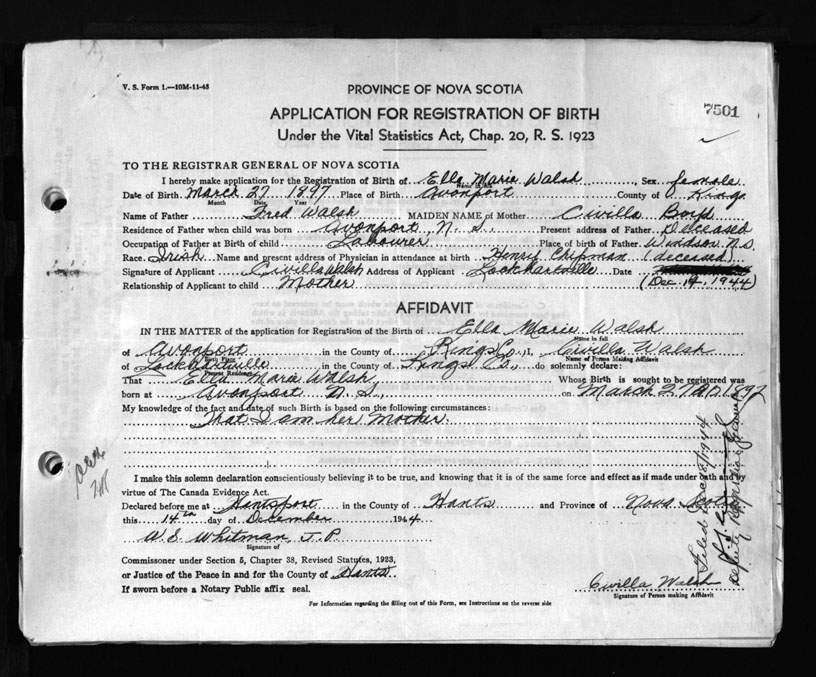 V. S. Form 1.—10M-11-43
PROVINCE OF NOVA SCOTIA
APPLICATION FOR REGISTRATION OF BIRTH
7501
Under the Vital Statistics Act, Chap. 20, R. S. 1923
TO THE REGISTRAR GENERAL OF NOVA SCOTIA
I hereby make application for the Registration of Birth of Ella Marie Walsh, Sex female
Name in full
Date of Birth March 27 1897 Place of Birth Avonport County of Kings
Month Date Year
Name of Father Fred Walsh MAIDEN NAME of Mother Civilla Boyd
Residence of Father when child was born Avonport, N. S. Present address of Father Deceased
Occupation of Father at Birth of child Labourer Place of birth of Father Windsor N.S.
Race Irish Name and present address of Physician in attendance at birth Henry Chipman (deceased)
Signature of Applicant Civilla Walsh Address of Applicant Lockhartville Date
Relationship of Applicant to child Mother (Dec. 14, 1944)
AFFIDAVIT
IN THE MATTER of the application for Registration of the Birth of Ella Marie Walsh
Name in full
of Avonport in the County of Kings Co., I, Civilla Walsh
Birth Place Name of Person Making Affidavit
of Lockhartville in the County of Kings Co., do solemnly declare:
Present Residence
That Ella Marie Walsh Whose Birth is sought to be registered was
born at Avonport N. S., on March 27 A.D. 1897
My knowledge of the fact and date of such Birth is based on the following circumstances:
That I am her Mother.
I make this solemn declaration conscientiously believing it to be true, and knowing that it is of the same force and effect as if made under oath and by
virtue of The Canada Evidence Act.
Declared before me at Hantsport in the County of Hants and Province of Nova Scotia
this 14th day of December 1944
W. S. Whitman J. P.
Signature of
Commissoner under Section 5, Chapter 38, Revised Statutes, 1923,
or Justice of the Peace in and for the County of Hants
If sworn before a Notary Public affix seal.
Civilla Walsh
Signature of Person making Affidavit
For Information regarding the filling out of this Form, see Instructions on the reverse side
Filed 1944
Deputy Registrar General